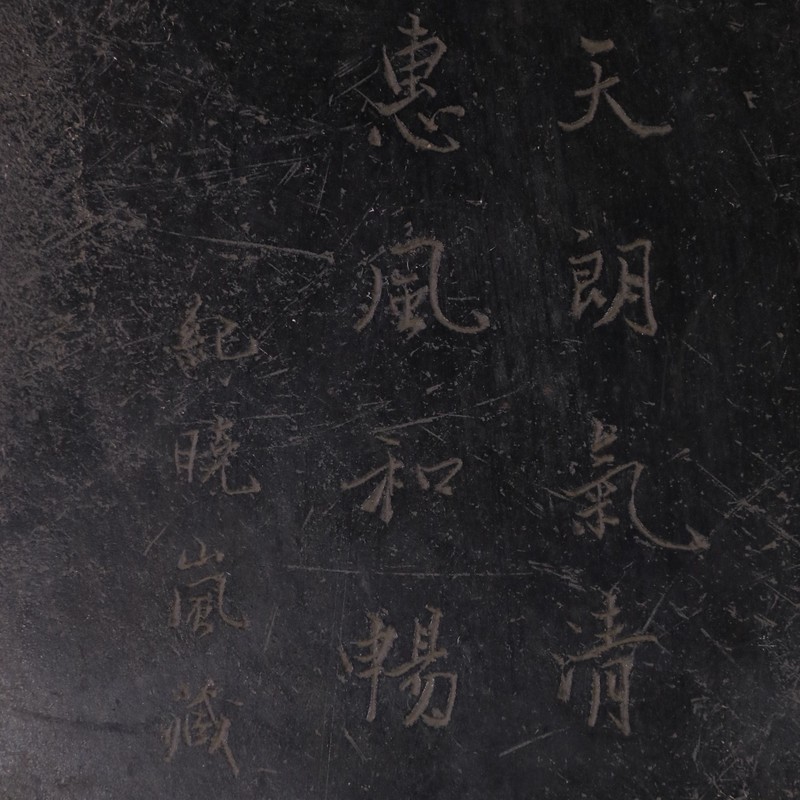 天朗氣清
惠風和暢
紀曉嵐藏